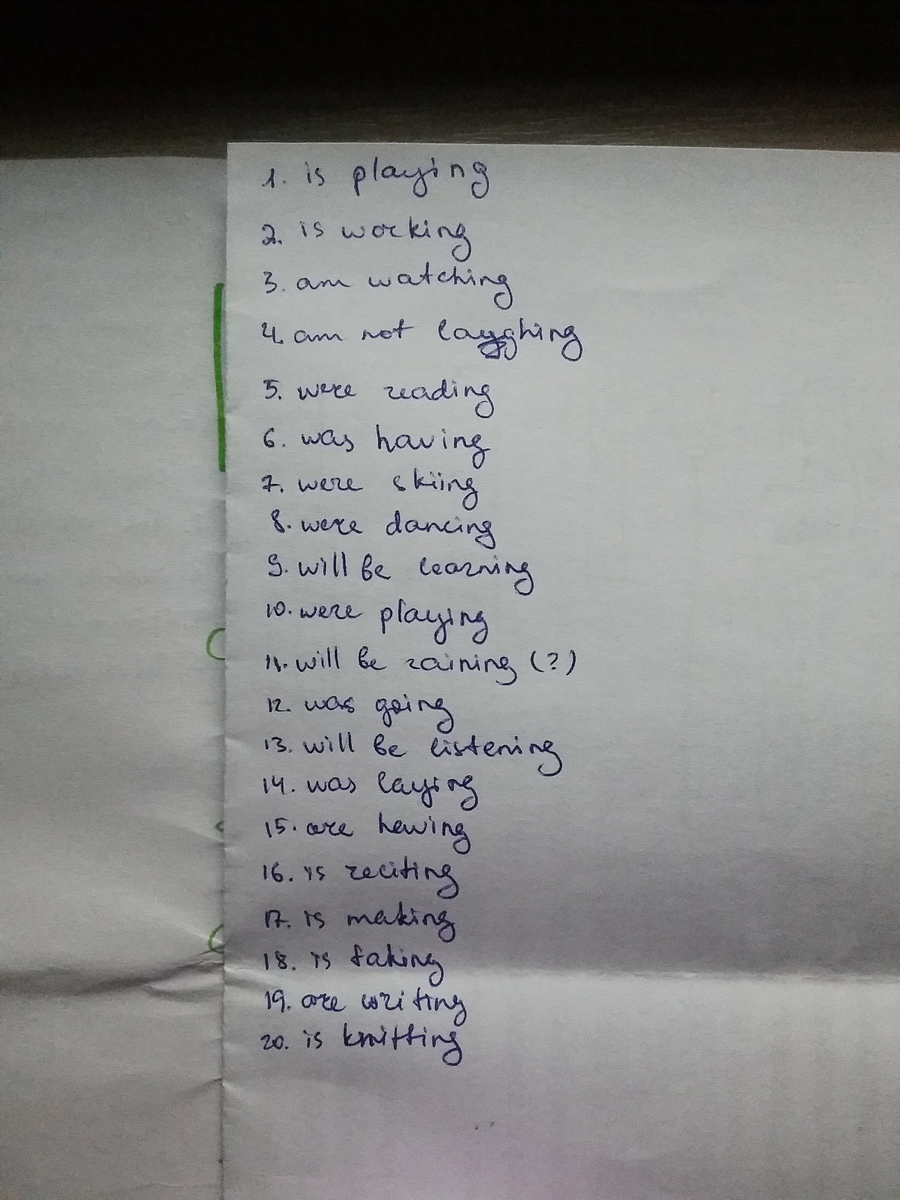 1. is playing
2. is working
3. am watching
4. am not laughing
5. were reading
6. was having
7. were skiing
8. were dancing
9. will be learning
10. were playing
11. will be raining (?)
12. was going
13. will be listening
14. was laying
15. are hewing
16. is reciting
17. is making
18. is taking
19. are writing
20. is knitting